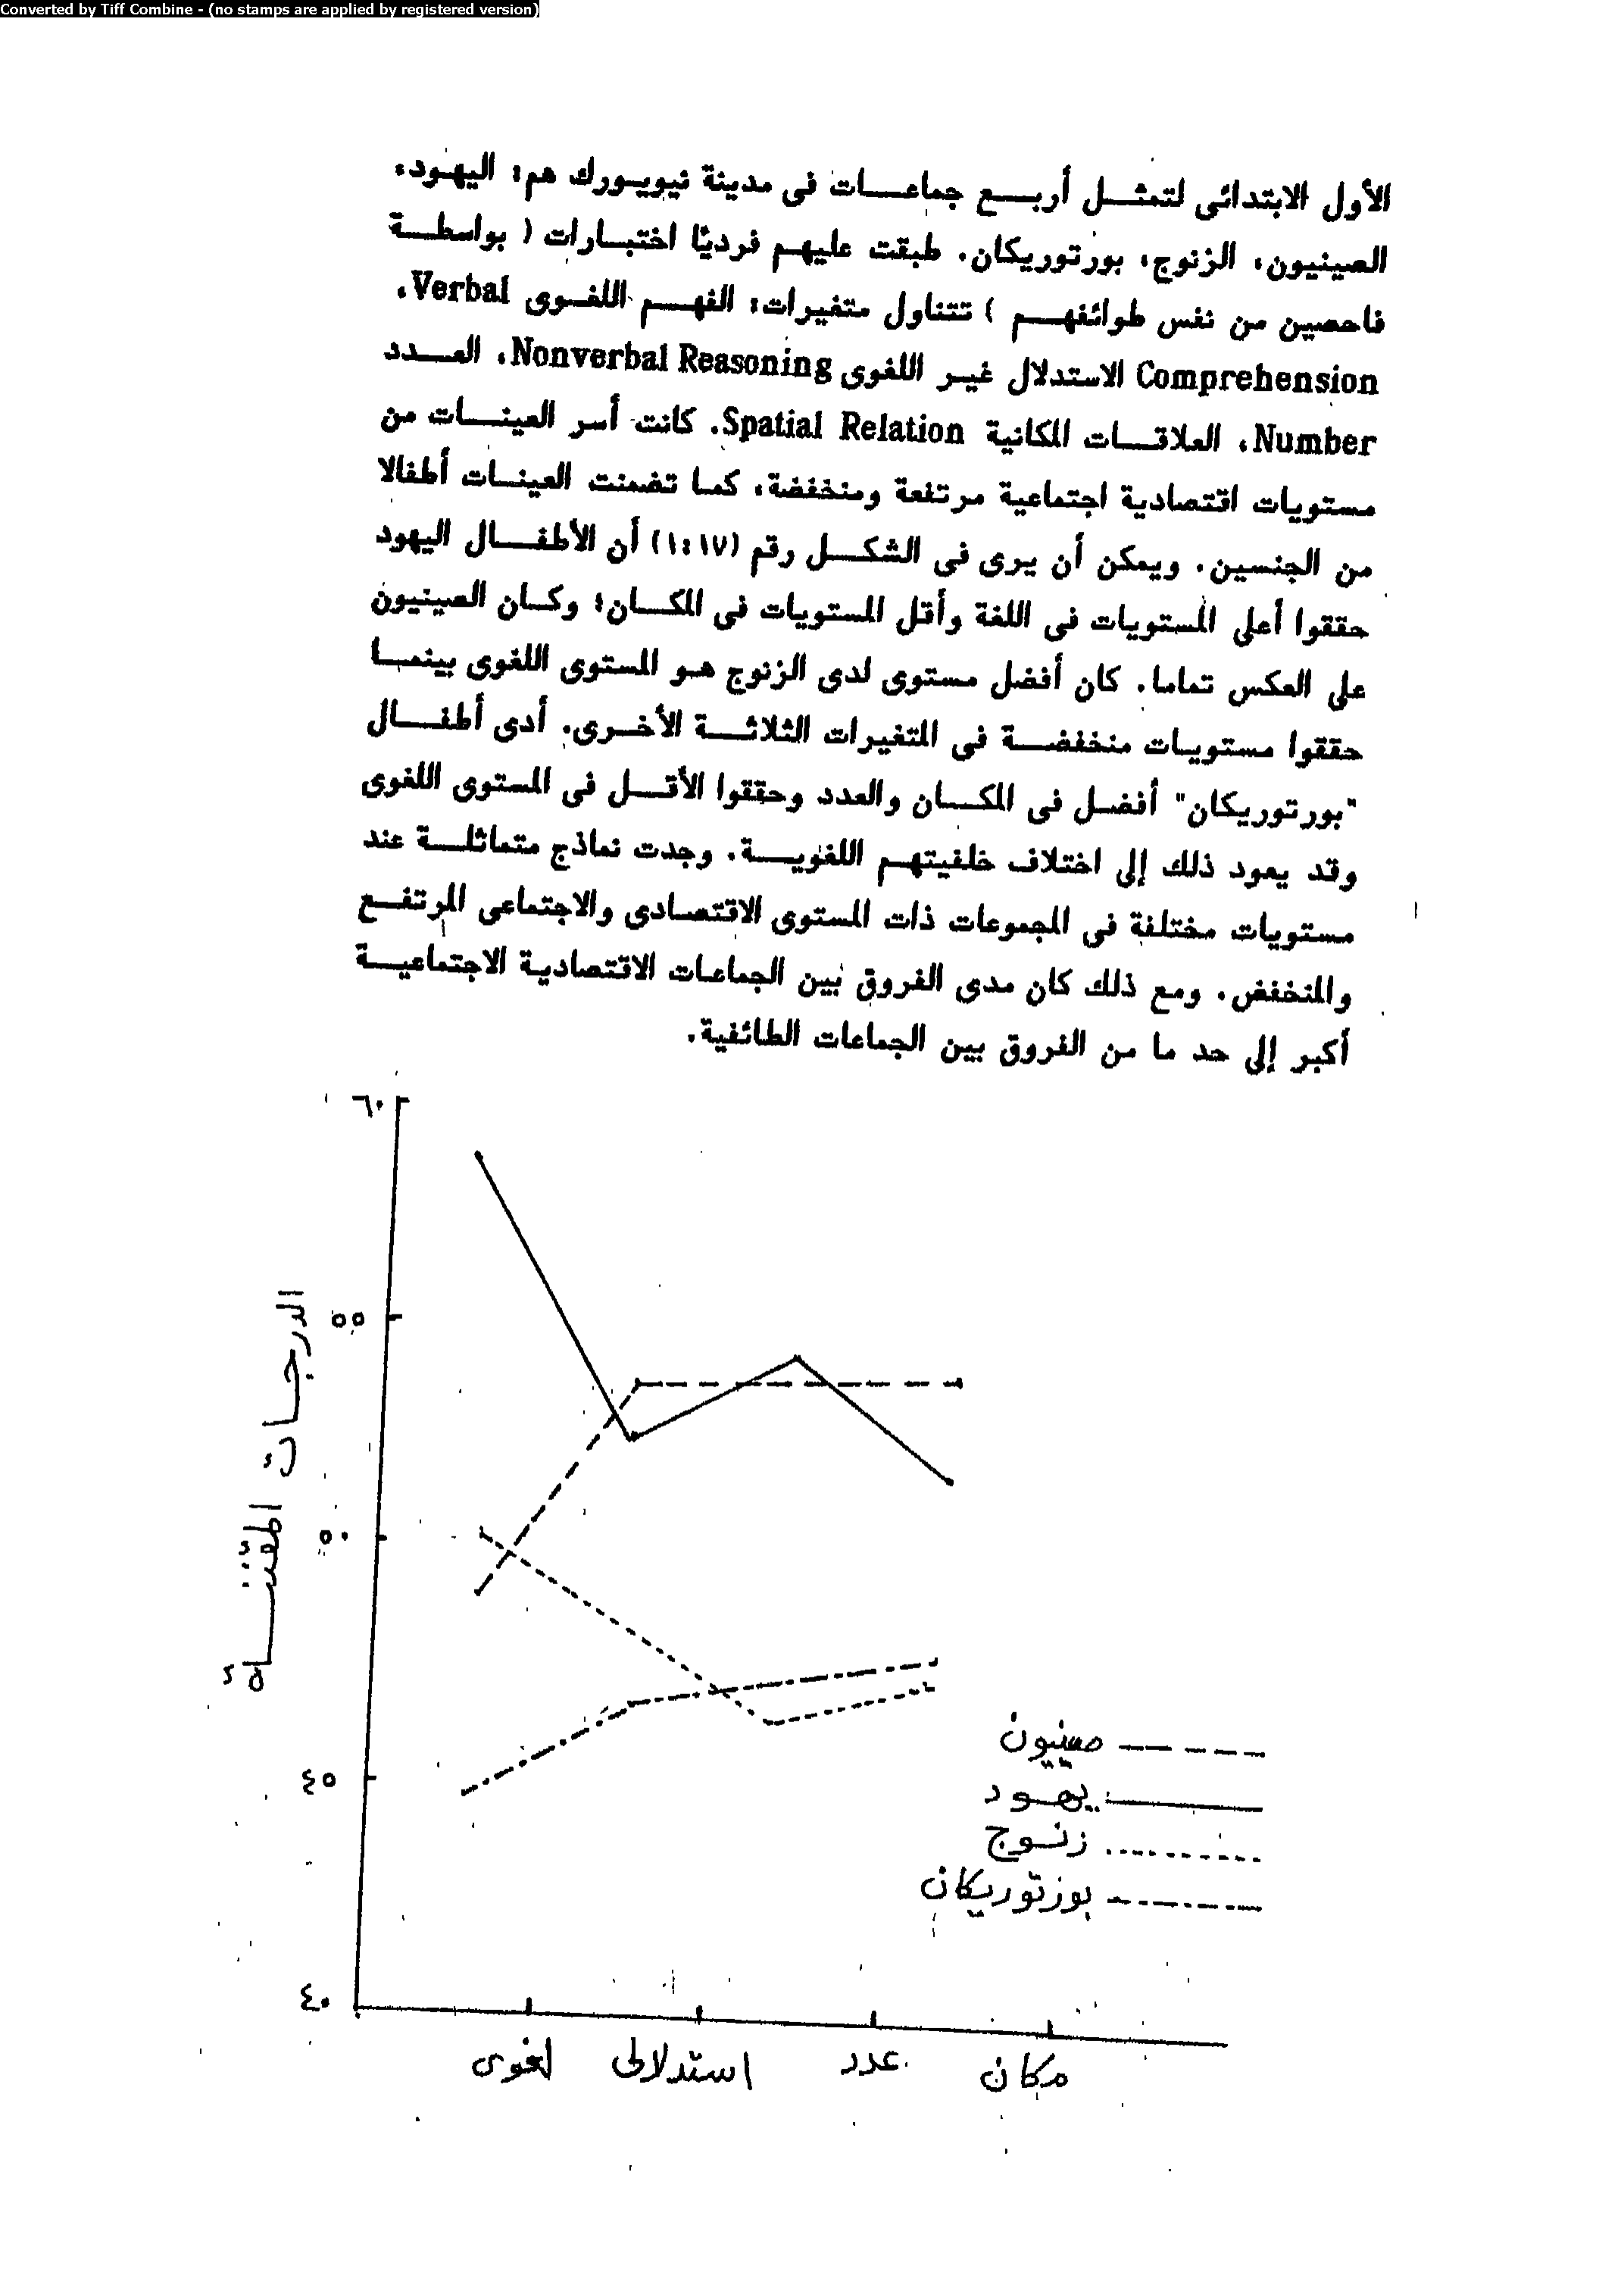 Converted by Tiff Combine - (no stamps are applied by registered version)
الأول الابتدائى لتمثــل أربــع جماعــات فى مدينة نيويـورك هم: اليهـود،
الصينيون، الزنوج، بورتوريكان. طبقت عليهـم فرديًا اختبـارات ( بواسطــة
فاحصين من نفس طوائفهــم ) تتناول متغيرات: الفهــم اللغـوى Verbal
Comprehension، الاستدلال غيـر اللغوى Nonverbal Reasoning، العــدد
Number، العلاقــات المكانية Spatial Relation. كانت أسر العينــات من
مستويات اقتصادية اجتماعية مرتفعة ومنخفضة، كمـا تضمنت العينـات أطفالا
من الجنسين. ويمكن أن يرى فى الشكــل رقم (١:١٧) أن الأطفــال اليهود
حققوا أعلى المستويات فى اللغة وأقل المستويات فى المكــان؛ وكـان الصينيون
على العكس تماما. كان أفضل مستوى لدى الزنوج هـو المستوى اللغوى بينمــا
حققوا مستويـات منخفضــة فى المتغيرات الثلاثــة الأخـرى. أدى أطفــال
"بورتوريكان" أفضـل فى المكــان والعدد وحققوا الأقــل فى المستوى اللغوى
وقد يعود ذلك إلى اختلاف خلفيتهـم اللغويــة. وجدت نماذج متماثلــة عند
مستويات مختلفة فى المجموعات ذات المستوى الاقتصـادى والاجتماعى المرتفـع
والمنخفض. ومع ذلك كان مدى الفروق بين الجماعـات الاقتصاديـة الاجتماعيــة
أكبر إلى حد ما من الفروق بين الجماعات الطائفية.
٦٠
٥٥
٥٠
٤٥
٤٠
الدرجـات المقننــة
صينيون
يهـود
زنـوج
بوزتوريكان
لغوى استدلالى عدد مكان